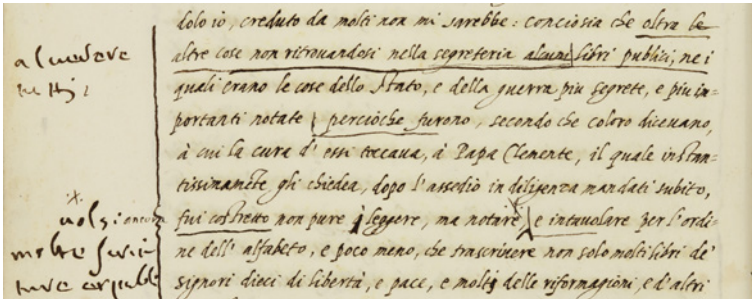 dolo io, creduto da molti non mi sarebbe: conciosia che oltra le
altre cose non ritrovandosi nella segreteria alcuni libri publici, ne i
quali erano le cose dello Stato, e della guerra piu segrete, e piu im-
portanti notate percioche furono, secondo che coloro dicevano,
à cui la cura d'essi toccava, à Papa Clemente, il quale instan-
tissimamẽte gli chiedea, dopo l'assedio in diligenza mandati subito,
fui costretto non pure à leggere, ma notare, e intavolare per l'ordi-
ne dell'alfabeto, e poco meno, che trascrivere non solo molti libri de'
signori dieci di libertà, e pace, e molti delle riformagioni, e d'altri
molte scrit
ture